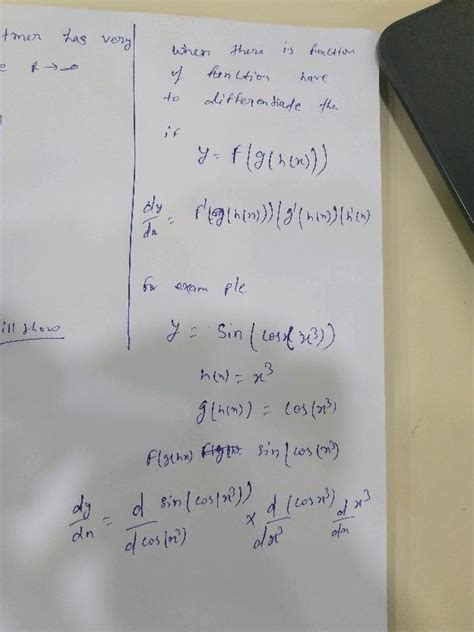 tmer has very
e R→∞
ill show
When there is function
of function have
to differentiate then
if
y = f(g(h(x)))
dy/dx = f'(g(h(x)))(g'(h(x))(h'(x)
for example
y = sin(cos(x³))
h(x) = x³
g(h(x)) = cos(x³)
f(g(hx) sin(cos(x³)
dy/dx = d sin(cos(x³))/d cos(x³) × d(cosx³)/dx³ d x³/dx